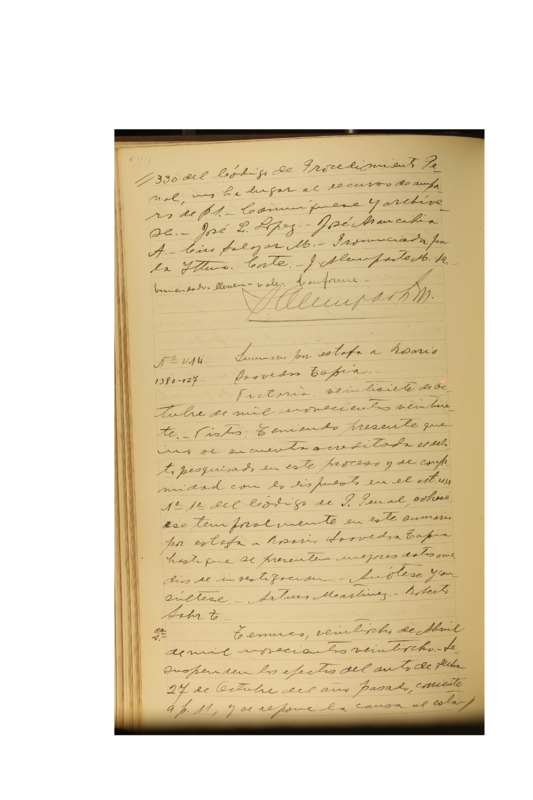 330 del Código de Procedimiento Pe-
nal, no ha lugar al recurso de ampa-
ro de p 1.- Comuníquese y archíve-
se.- José L. Lopez.- José Arancibia
A.- Ciro Salazar M.- Pronunciada por
la Iltma. Corte.- J Almuparte M. S.
vale. Conforme.-
Nº 1114 Sumario por estafa a Rosario
1380-027 Saavedra Tapia.-
Victoria, veintisiete de oc-
tubre de mil novecientos veintisie-
te.- Vistos: Teniendo presente que
no se encuentra acreditado el deli-
to pesquisado en este proceso y de confor-
midad con lo dispuesto en el art
Nº 1º del Código de P. Penal, sobresé-
ese temporalmente en este sumario
por estafa a Rosario Saavedra Tapia
hasta que se presenten mejores datos o me-
dios de investigacion.- Anótese y con-
súltese.- Arturo Martinez.- Roberto
2ª
Temuco, veintiocho de Abril
de mil novecientos veintiocho.- Se
suspenden los efectos del auto de fecha
27 de Octubre del año pasado, corriente
a p. 11, y se repone la causa al estado